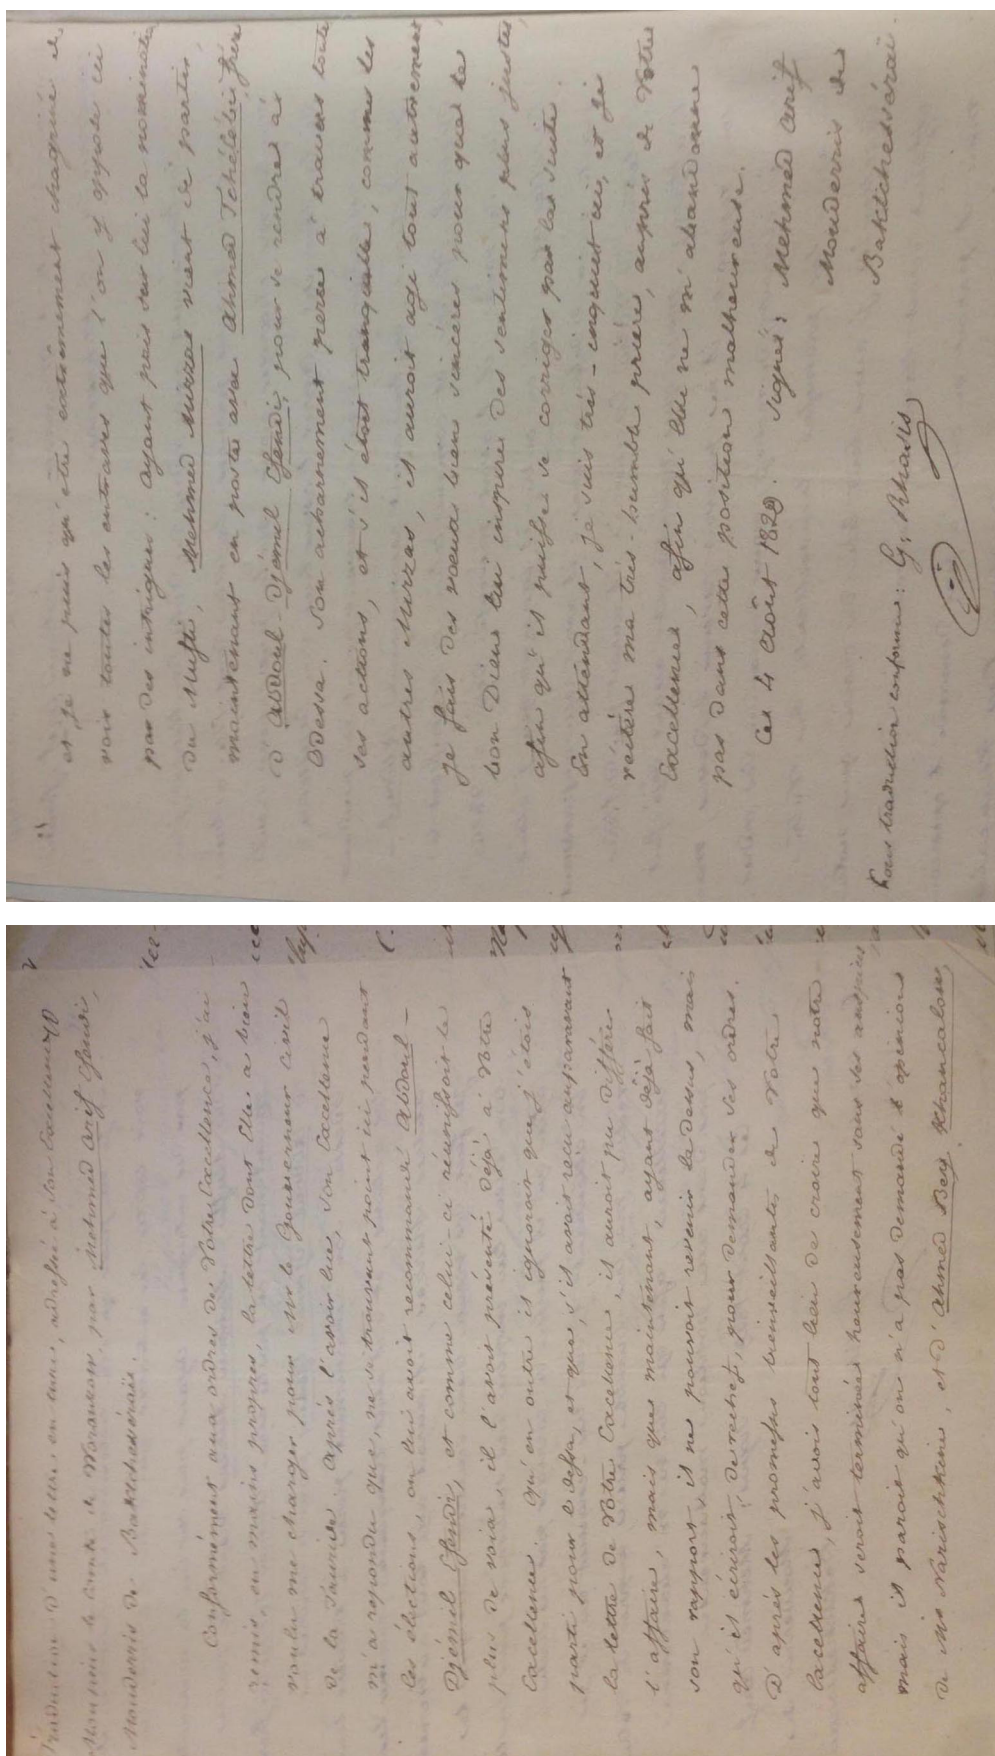 Traduction d'une lettre en turc, adressée à Son Excellence
Monsieur le Comte de Woronzow, par Mehmed Arif Efendi,
Mouderris de Baktcheséraïi.
Conformément aux ordres de Votre Excellence, j'ai
remis, en mains propres, la lettre dont Elle a bien
voulu me charger pour Mr le Gouverneur Civil
de la Tauride. Après l'avoir lue, Son Excellence
m'a répondu que, ne se trouvant point ici pendant
les élections, on lui avoit recommandé Abdoul-
Djémil Efendi, et comme celui-ci réunissoit le
plus de voix, il l'avoit présenté déjà à Votre
Excellence. qu'en outre il ignoroit que j'étois
parti pour Odessa, et que, s'il avoit reçu auparavant
la lettre de Votre Excellence, il auroit pu différer
l'affaire, mais que maintenant, ayant déjà fait
son rapport il ne pouvoit revenir la dessus, mais
qu'il écriroit, derechef, pour demander ses ordres.
D'après les promesses bienveillantes de Votre
Excellence, j'avois tout lieu de croire que notre
affaire seroit terminée heureusement sous ses auspices
mais il paroit qu'on n'a pas demandé l'opinion
de Mr Narischkine, et d'Ahmed Bey Khouncalow,
et je ne puis qu'être extrêmement chagriné de
voir toutes les entraves que l'on y oppose ici
par des intrigues: ayant pris sur lui la nomination
du Mufti, Mehmed Mirzas vient de partir
maintenant en poste avec Ahmed Tchélébi frère
d'Abdoul-Djémil Efendi, pour se rendre à
Odessa. Son acharnement perce à travers toutes
ses actions, et s'il étoit tranquille, comme les
autres Mirzas, il auroit agi tout autrement,
je fais des voeux bien sincères pour que le
bon Dieu lui inspire des sentimens plus justes
afin qu'il puisse se corriger par la suite.
En attendant, je suis très-inquiet ici, et je
reitère ma très-humble prière, auprès de Votre
Excellence, afin qu'Elle ne m'abandonne
pas dans cette position malheureuse.
Ce 4 Août 1829. Signé: Mehmed Arif
Mouderris de
Baktcheséraïi.
Pour traduction conforme: G.